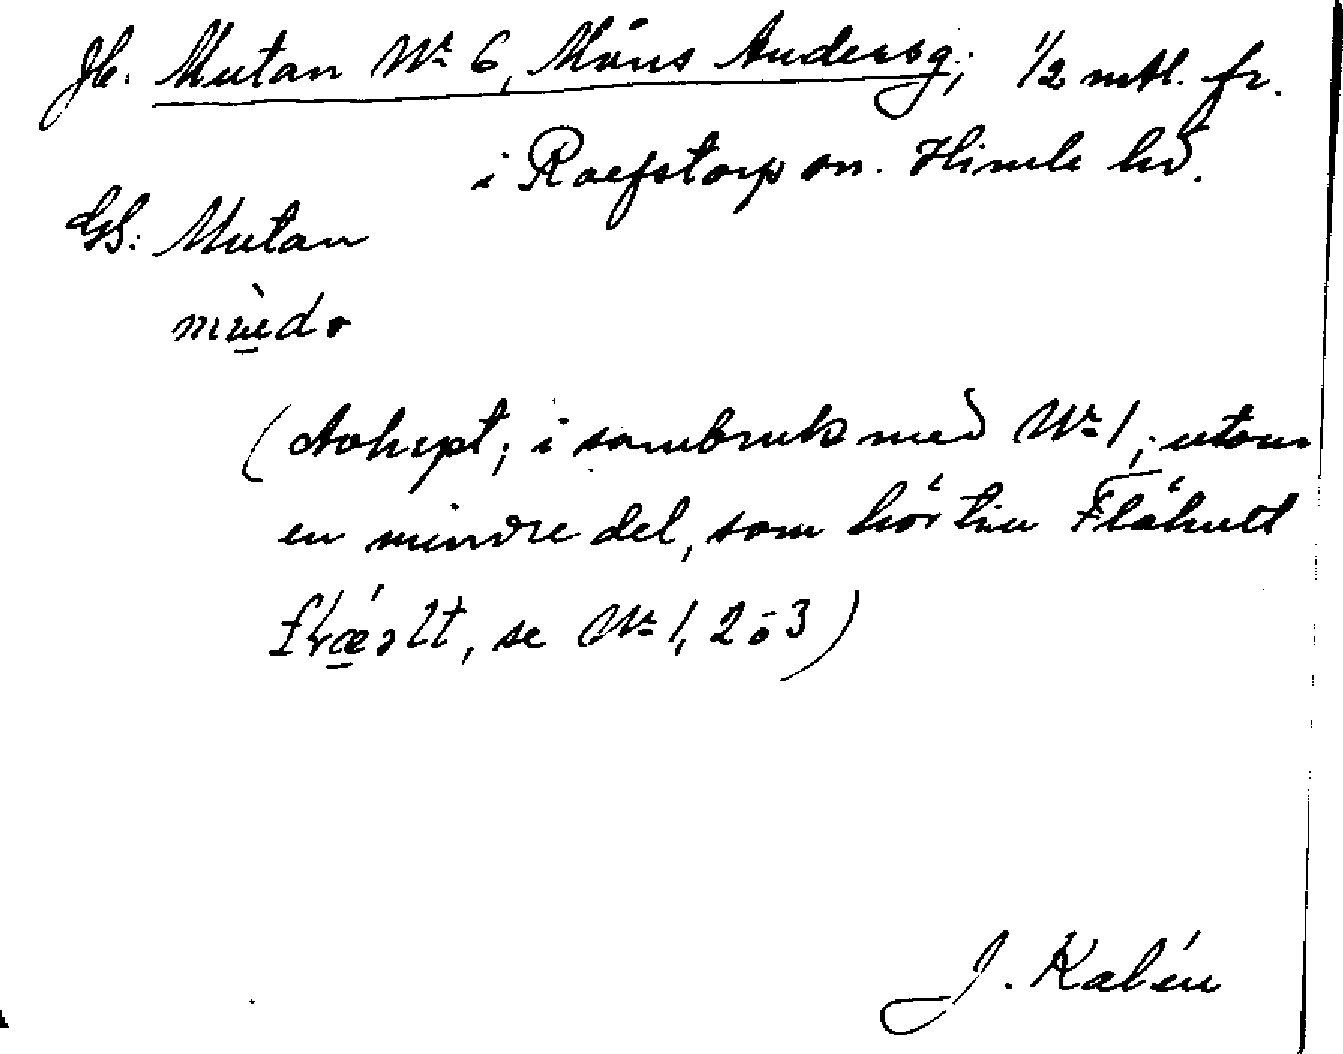 Jb. Mutan Nr 6, Måns Andersg.; 1/2 mtl. fr.
i Raefstorp sn. Himle hd.
GS: Mutan
(Avhyst; i sambruk med Nr 1, utom
en mindre del, som hör till Flähult
se Nr 1, 2 o 3)
J. Kalén